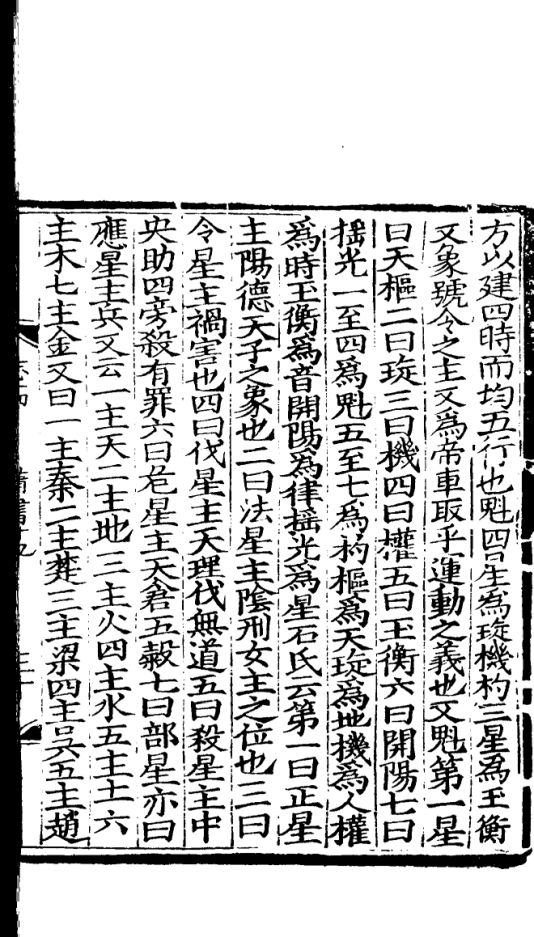 方以建四時而均五行也魁四星為琁機杓三星為玉衡
又象號令之主又為帝車取乎運動之義也又魁第一星
曰天樞二曰琁三曰機四曰權五曰玉衡六曰開陽七曰
揺光一至四為魁五至七為杓樞為天琁為地機為人權
為時玉衡為音開陽為律揺光為星石氏云第一曰正星
主陽德天子之象也二曰法星主隂刑女主之位也三曰
令星主禍害也四曰伐星主天理伐無道五曰殺星主中
央助四旁殺有罪六曰危星主天倉五糓七曰部星亦曰
應星主兵又云一主天二主地三主火四主水五主土六
主木七主金又曰一主秦二主楚三主梁四主吳五主趙